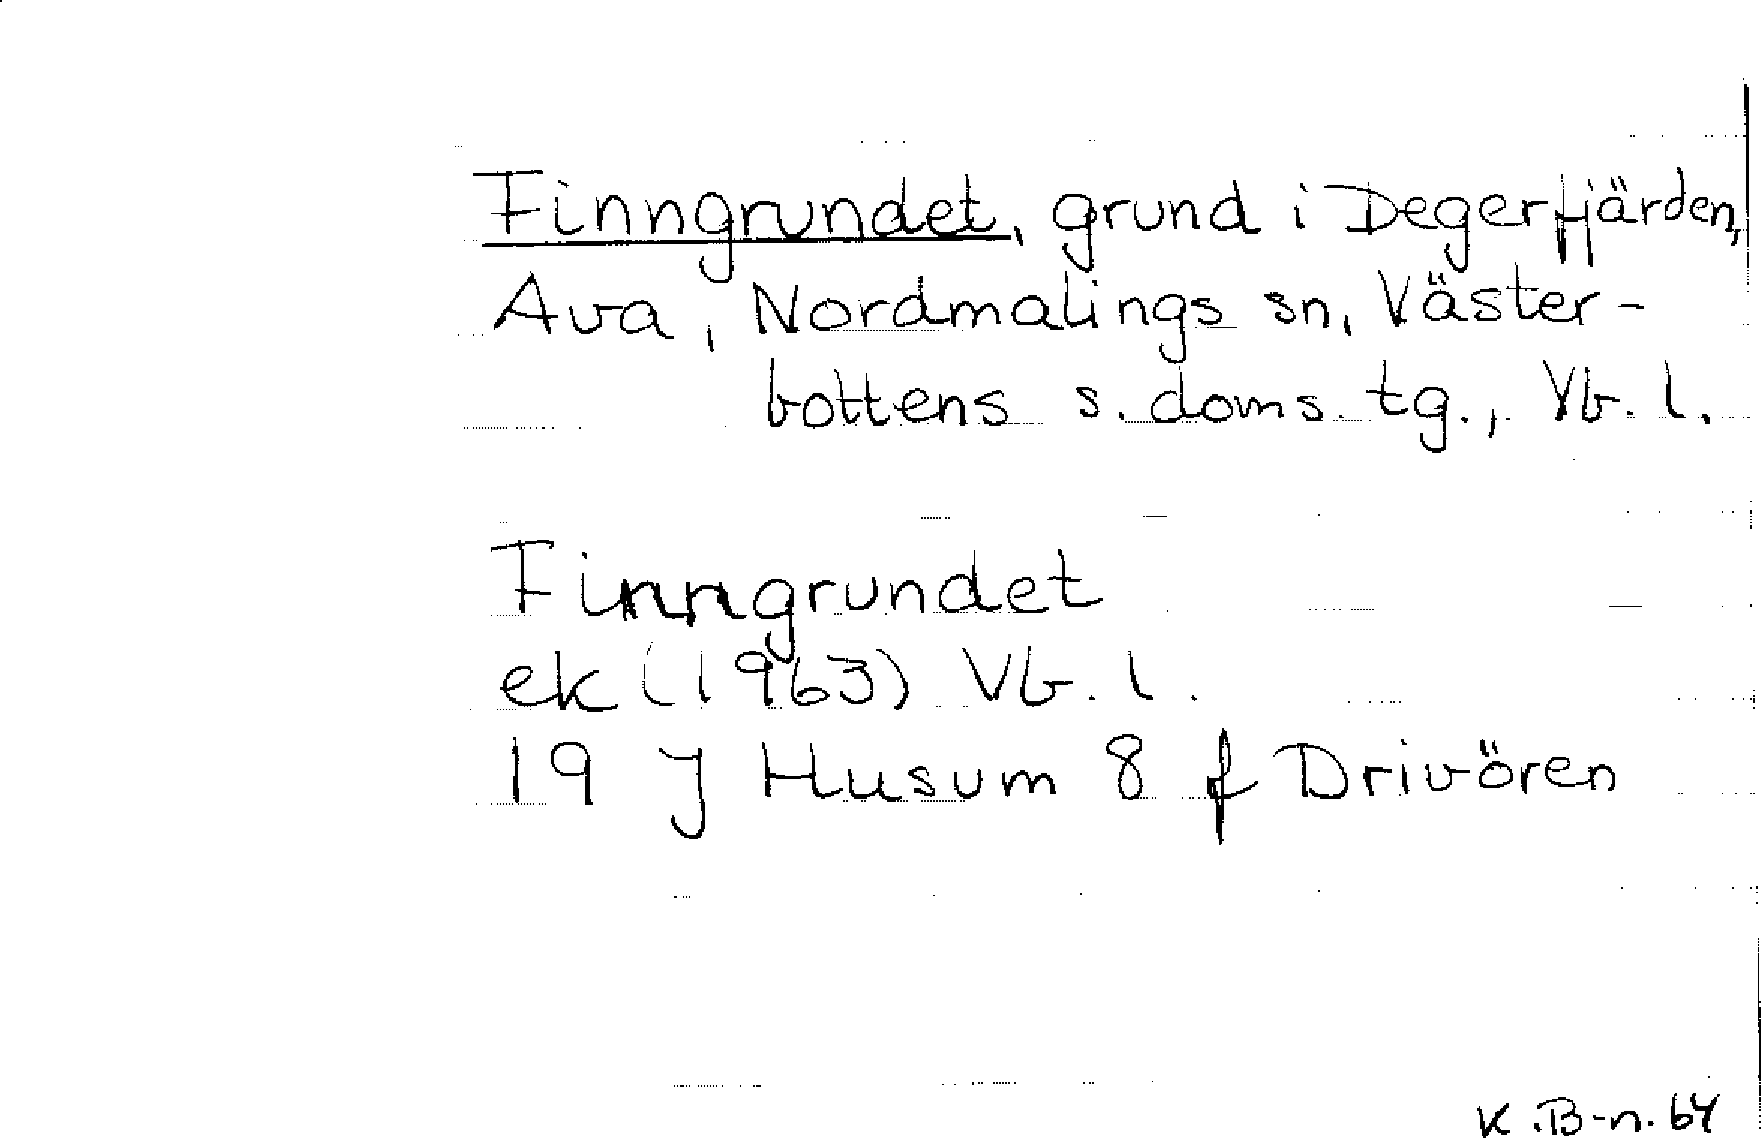 Finngrundet, grund i Degerfjärden,
Ava, Nordmalings sn, Väster-
bottens s. doms. tg., Vb. l.
Finngrundet
ek (1963) Vb. l.
19 J Husum 8 f Drivören
K.B-n. 64